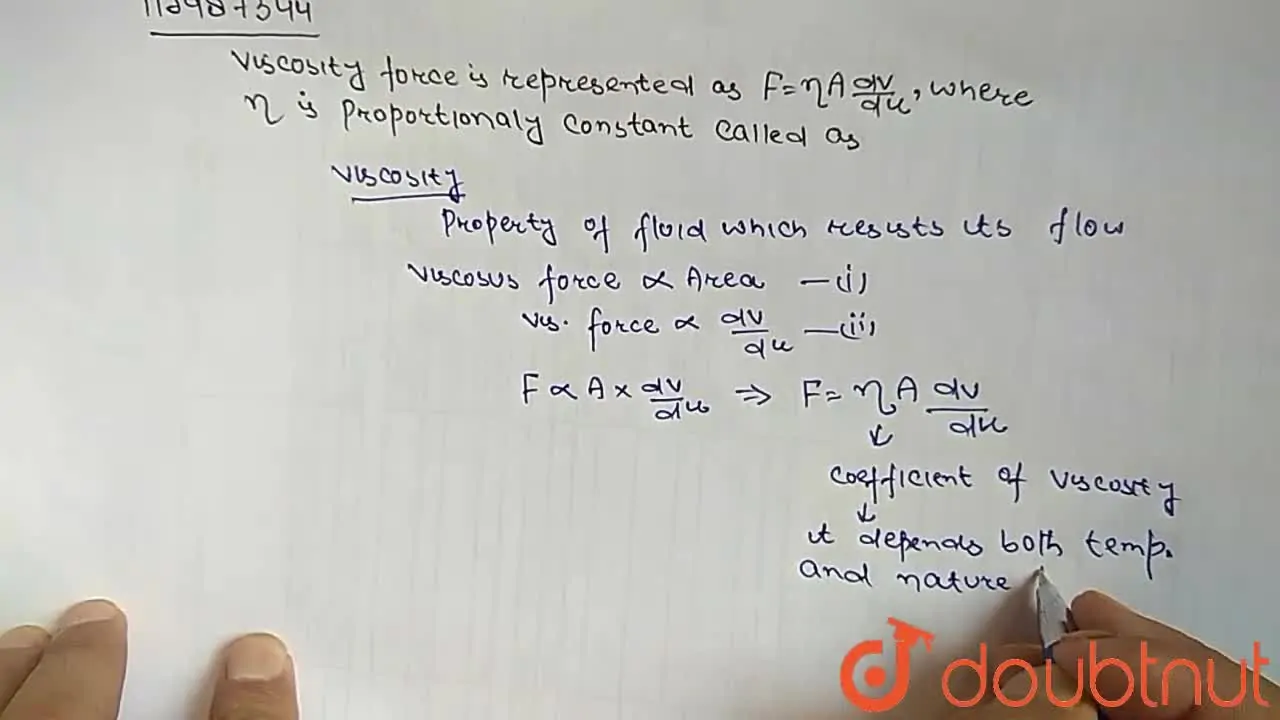 Viscosity force is represented as F=ηA dv/dx, where
η is proportionaly constant called as
Viscosity
Property of fluid which resists its flow
Viscosus force ∝ Area —(i)
Vis. force ∝ dv/dx —(ii)
F ∝ A × dv/dx ⇒ F= ηA dv/dx
↓
coefficient of viscosity
↓
it depends both temp.
and nature
doubtnut